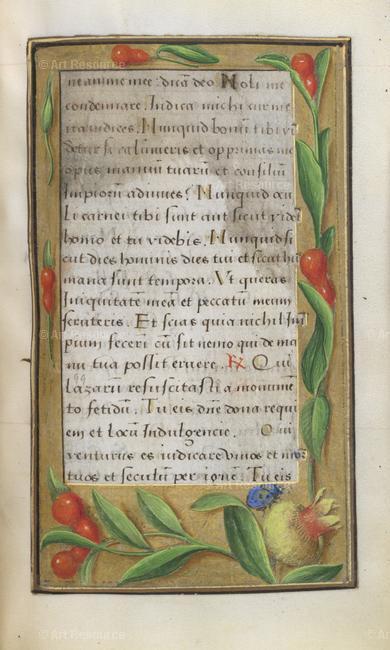 ne anime mee: dicā deo Noli me
condemnare. Indica michi cur me
ita iudices. Nunquid bonū tibi vi
detur si calūnieris et opprimas me
opus manuū tuarū et consiliū
Impiorū adiuues? Nunquid ocu
li carnei tibi sunt aut sicut videt
homo et tu videbis. Nunquid si
cut dies hominis dies tui et sicut hu
mana sunt tempora. Vt queras
Iniquitate meā et peccatū meum
scruteris. Et scias quia nichil Im
pium fecerī cū sit nemo qui de ma
nu tua possit eruere. ℞ Qui
Lazarū resuscitasti a monume
to fetidū. Tu eis dn̄e dona requi
em et locū Indulgencie. Qui
venturus es iudicare viuos et mor
tuos et seculū per ignē. Tu eis
© Art Resource
© Art Resource
© Art Resource
© Art Resource